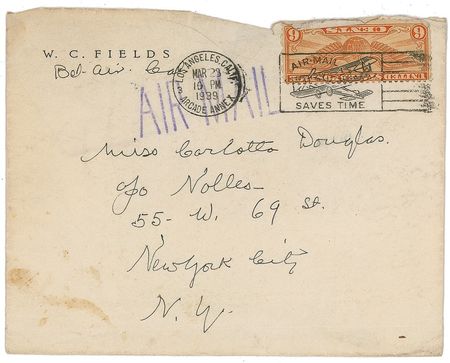 W. C. FIELDS
Bel-Air. Cal
LOS ANGELES, CALIF.
MAR 23
10 PM
1939
ARCADE ANNEX
3
AIR MAIL
9 9
AIR-MAIL
SAVES TIME
Miss Carlotta Douglas.
c/o Nolles-
55- W. 69 St.
New York City
N. Y.